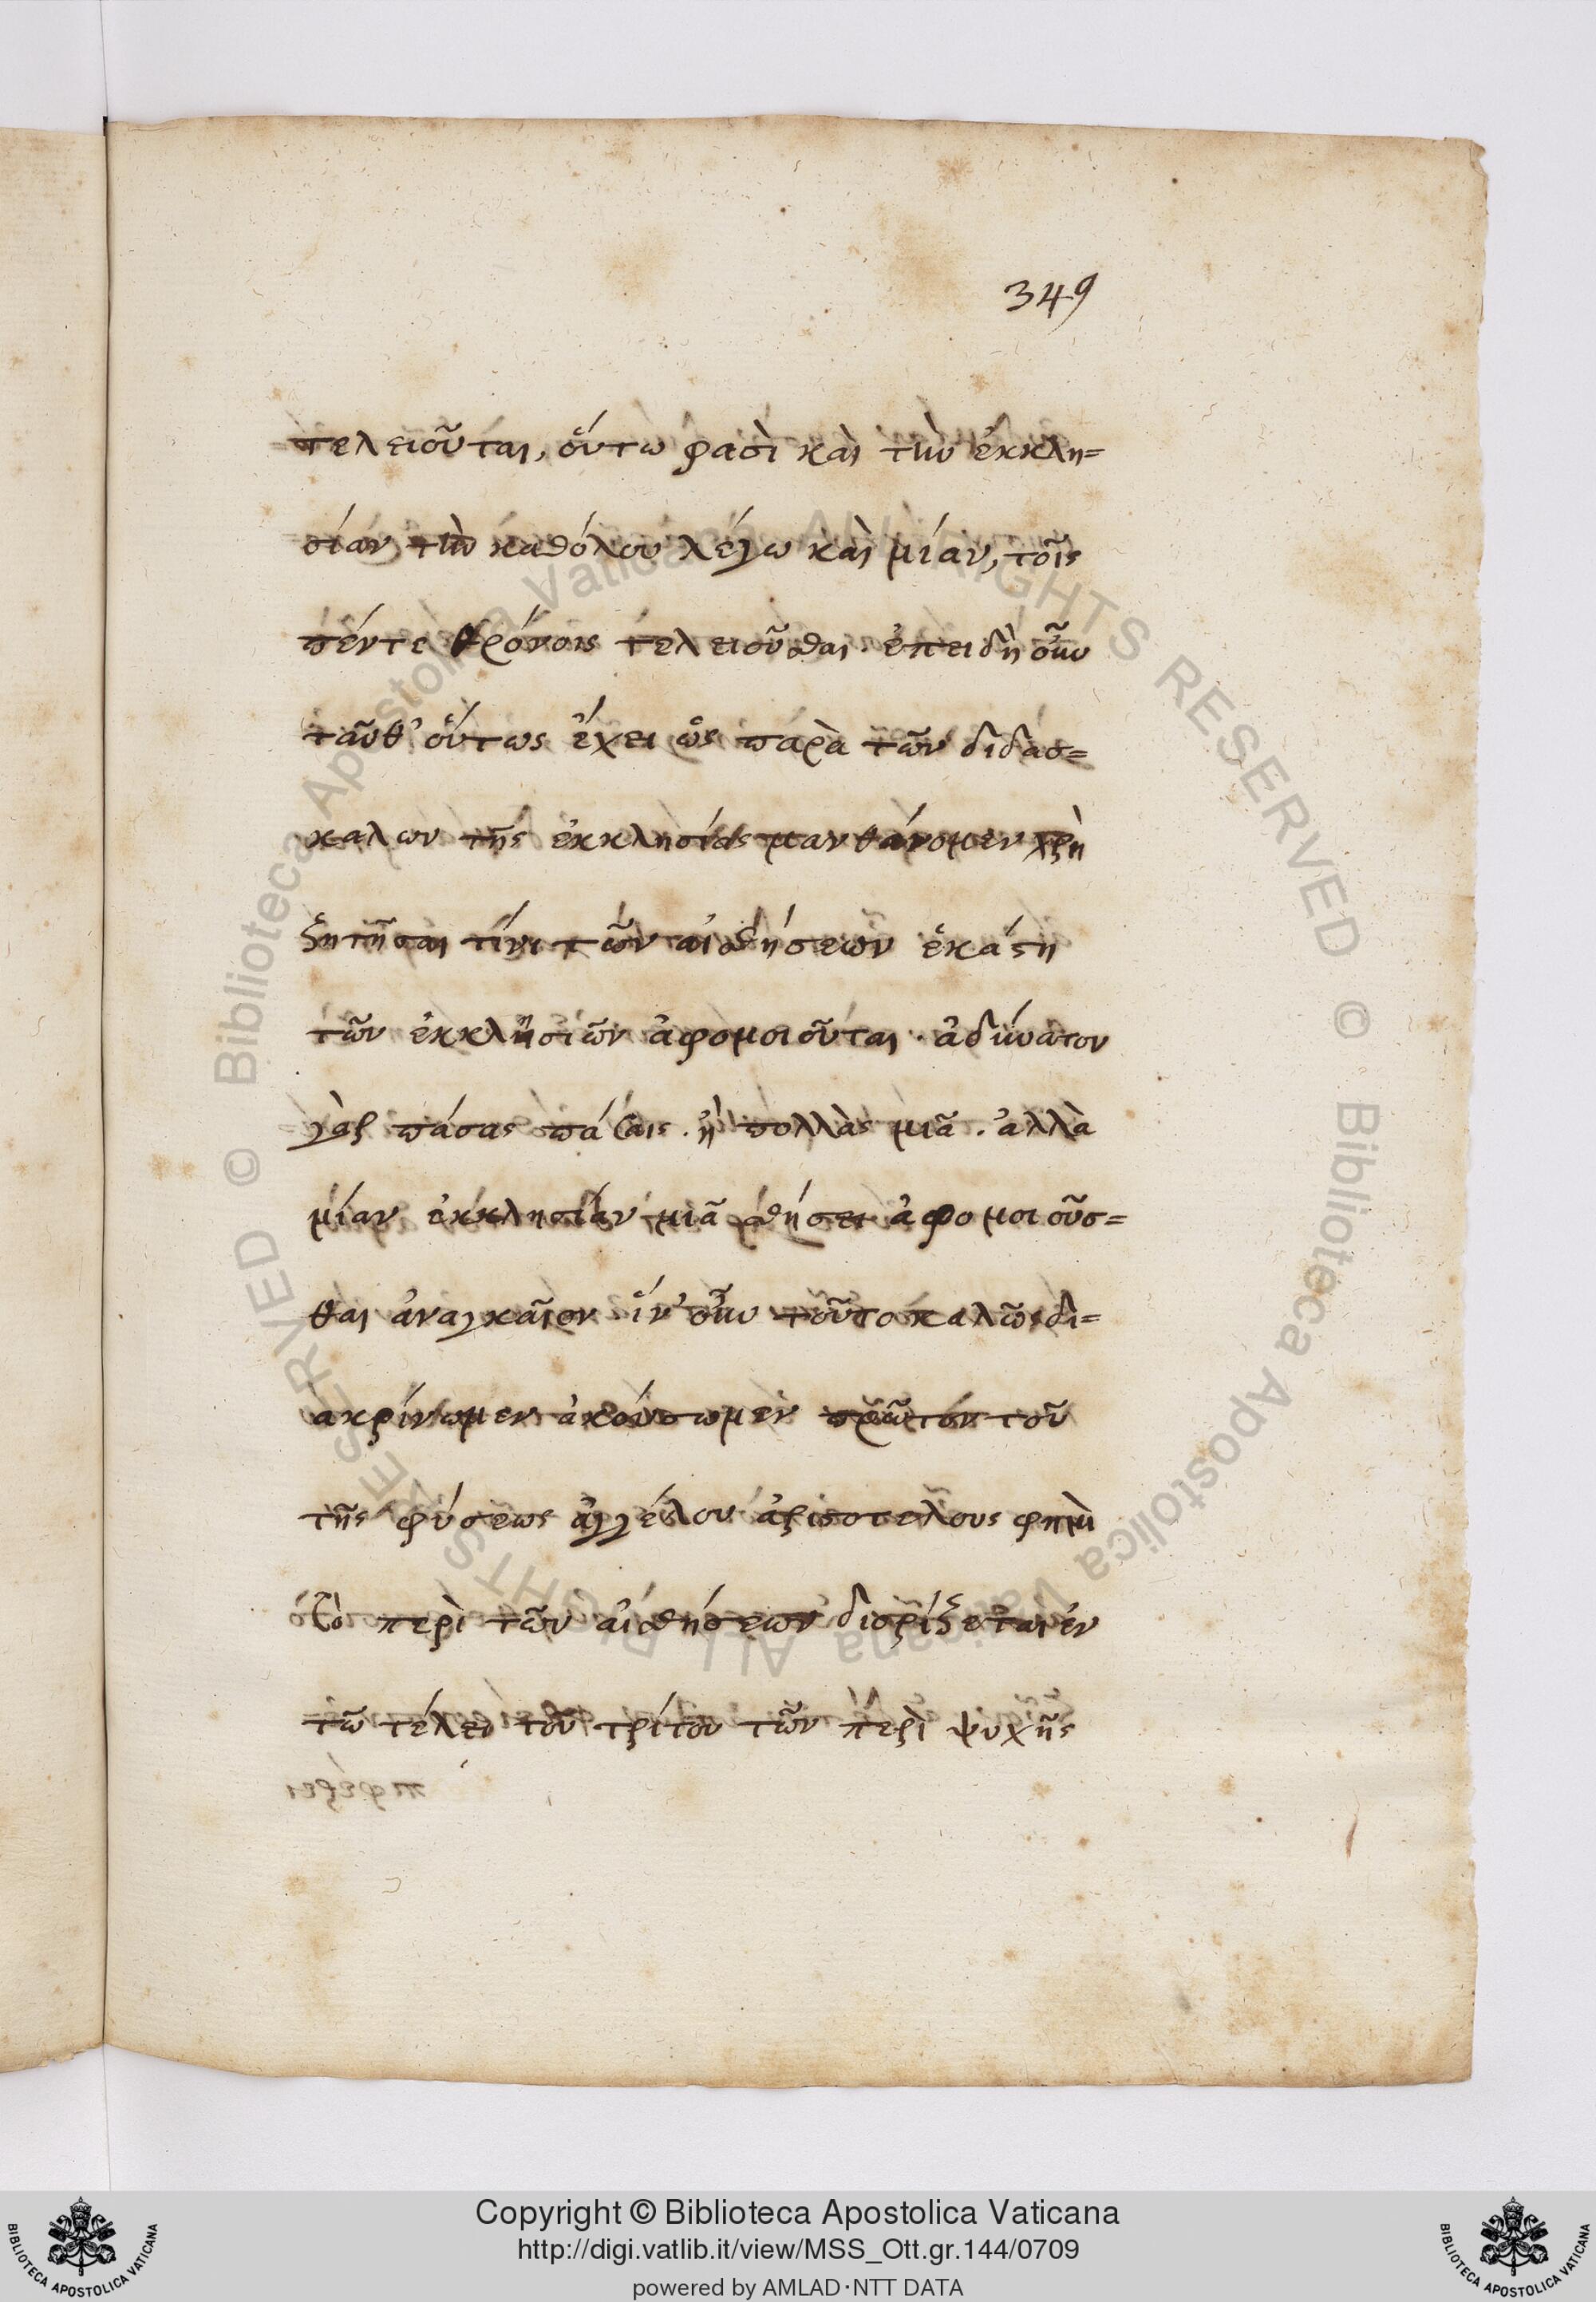 349
τελειοῦται, οὕτω φασὶ καὶ τὴν ἐκκλη=
σίαν τὴν καθόλου λέγω καὶ μίαν, τοῖς
πέντε θρόνοις τελειοῦσθαι. ἐπειδὴ οὖν
ταῦθ' οὕτως ἔχει ὡς παρὰ τῶν διδασ=
καλων τῆς ἐκκλησίας μανθάνομεν χρὴ
ζητῆσαι τίνι τῶν αἰσθήσεων ἑκάστη
τῶν ἐκκλησιῶν ἀφομοιοῦται. ἀδύνατον
γὰρ πάσας πάσαις. ἢ πολλὰς μιᾶ. ἀλλὰ
μίαν ἐκκλησίαν μιᾶ αἰσθήσει ἀφομοιοῦσ=
θαι ἀναγκαῖον. ἵν' οὖν τοῦτο καλῶς δι=
ακρίνωμεν ἀκούσωμεν πρῶτον τοῦ
τῆς φύσεως ἀγγέλου ἀριστοτέλους φημὶ
ὅτι περὶ τῶν αἰσθήσεων διορίζεται ἐν
τῶ τέλει τοῦ τρίτου τῶν περὶ ψυχῆς
© Biblioteca Apostolica Vaticana ALL RIGHTS RESERVED © Biblioteca Apostolica Vaticana ALL RIGHTS RESERVED
Copyright © Biblioteca Apostolica Vaticana
http://digi.vatlib.it/view/MSS_Ott.gr.144/0709
powered by AMLAD·NTT DATA
BIBLIOTECA APOSTOLICA VATICANA
BIBLIOTECA APOSTOLICA VATICANA